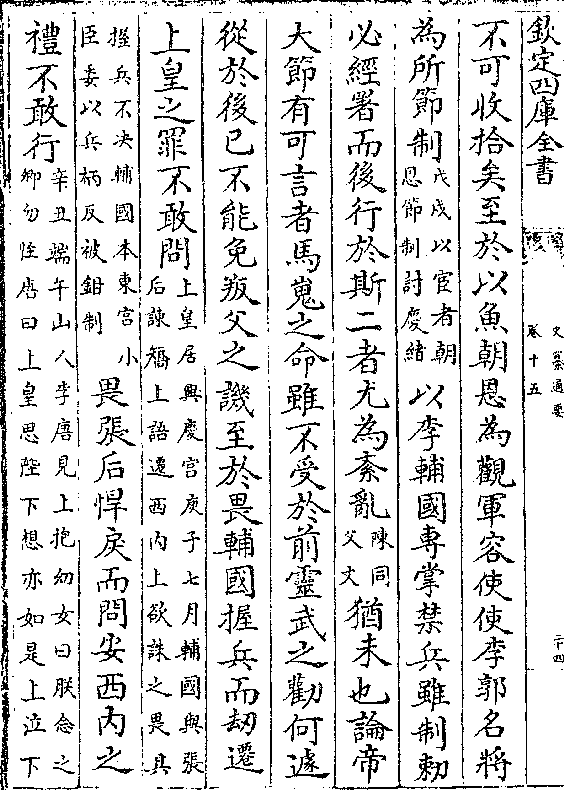 欽定四庫全書
卷十五
二十四
不可收拾矣至於以魚朝恩為觀軍容使使李郭名將
為所節制戊戌以宦者朝恩節制討慶緒以李輔國專掌禁兵雖制勅
必經署而後行於斯二者尤為紊亂陳同父文猶未也論帝
大節有可言者馬嵬之命雖不受於前靈武之勸何遽
從於後已不能免叛父之譏至於畏輔國握兵而刼遷
上皇之罪不敢問上皇居興慶宮庚子七月輔國與張后諫矯上語遷西内上欲誅之畏其
握兵不决輔國本東宮小臣委以兵柄反被鉗制畏張后悍戾而問安西内之
禮不敢行辛丑端午山人李唐見上抱幼女曰朕念之卿勿怪唐曰上皇思陛下想亦如是上泣下